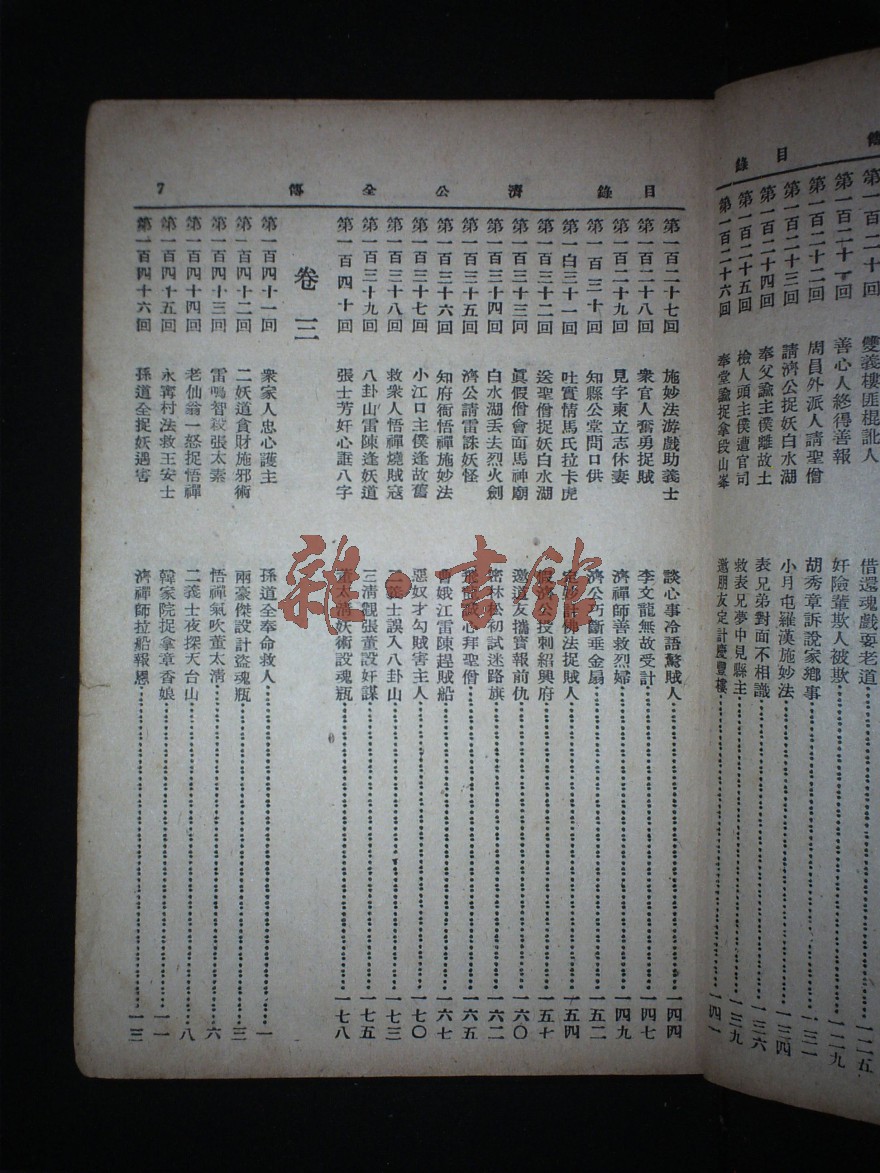 傳
目錄
第一百二十回
雙義樓匪棍訛人
借還魂戲耍老道
一二五
第一百二十一回
善心人終得善報
奸險輩欺人被欺
一二九
第一百二十二回
周員外派人請聖僧
胡秀章訴說家鄉事
一三一
第一百二十三回
請濟公捉妖白水湖
小月屯羅漢施妙法
一三四
第一百二十四回
奉父諭主僕離故土
表兄弟對面不相識
一三六
第一百二十五回
檢人頭主僕遭官司
救表兄夢中見縣主
一三九
第一百二十六回
奉堂諭捉拿段山峯
邀朋友定計慶豐樓
一四一
目錄 濟公全傳 7
第一百二十七回 施妙法游戲助義士 談心事冷語驚賊人 一四四
第一百二十八回 衆官人奮勇捉賊 李文龍無故受計 一四七
第一百二十九回 見字柬立志休妻 濟禪師善救烈婦 一四九
第一百三十回 知縣公堂問口供 濟公巧斷垂金扇 一五二
第一白三十一回 吐實情馬氏拉卡虎 定妙計佛法捉賊人 一五四
第一百三十二回 送聖僧捉妖白水湖 假濟公投刺紹興府 一五七
第一百三十三回 眞假僧會面馬神廟 邀道友攜寶報前仇 一六〇
第一百三十四回 白水湖丟去烈火劍 密林松初試迷路旗 一六二
第一百三十五回 濟公請雷誅妖怪 心拜聖僧 一六五
第一百三十六回 知府衙悟禪施妙法 曾娥江雷陳趕賊船 一六七
第一百三十七回 小江口主僕逢故舊 惡奴才勾賊害主人 一七〇
第一百三十八回 救衆人悟禪燒賊寇 二義士誤入八卦山 一七三
第一百三十九回 八卦山雷陳逢妖道 三清觀張董設奸謀 一七五
第一百四十回 張士芳奸心誆八字 董太淸妖術設魂瓶 一七八
卷三
第一百四十一回 衆家人忠心護主 孫道全奉命救人 一
第一百四十二回 二妖道貪財施邪術 兩豪傑設計盜魂瓶 三
第一百四十三回 雷鳴智殺張太素 悟禪氣吹董太淸 六
第一百四十四回 老仙翁一怒捉悟禪 二義士夜探天台山 八
第一百四十五回 永寗村法救王安士 韓家院捉拿章香娘 一一
第一百四十六回 孫道全捉妖遇害 濟禪師拉船報恩 一三
雜·書館